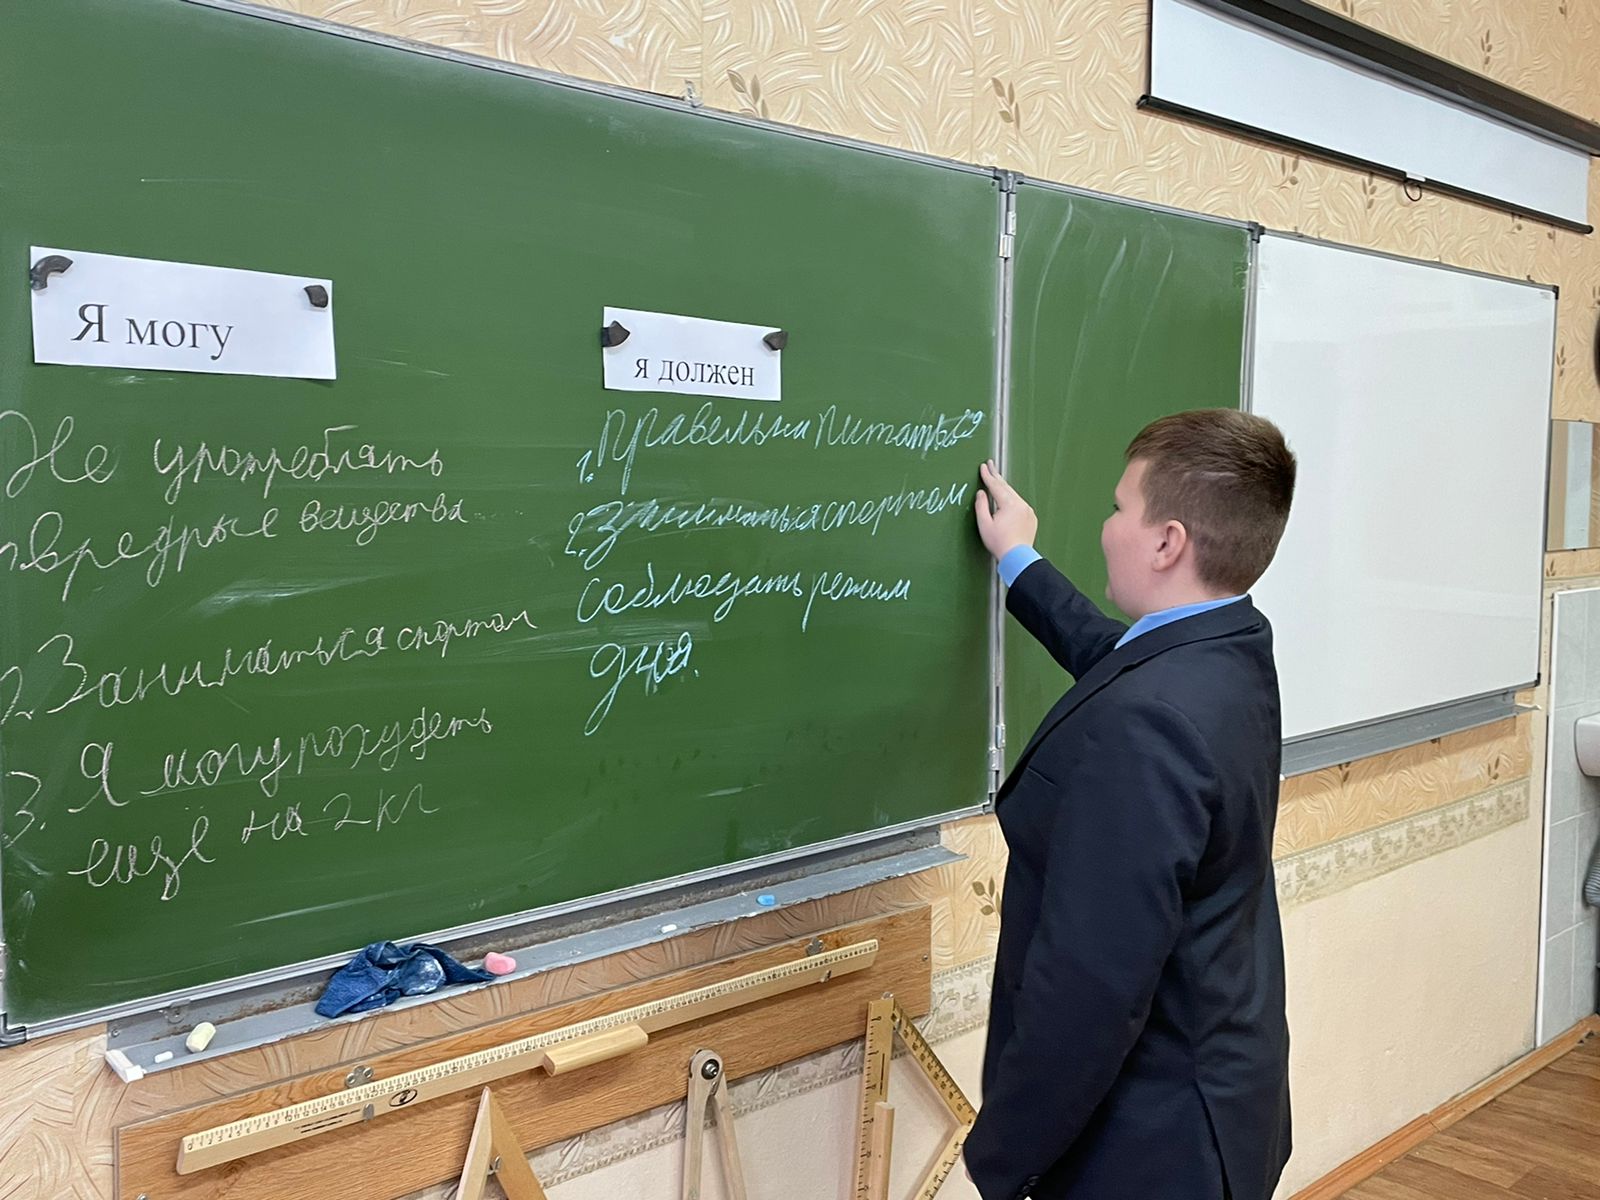 Я могу
Не употреблять
1. вредные вещества
2. Заниматься спортом
3. Я могу похудеть
ещё на 2 кг
я должен
1. Правельни питаться
2. Заниматься спортом
Соблюдать режим
дня.